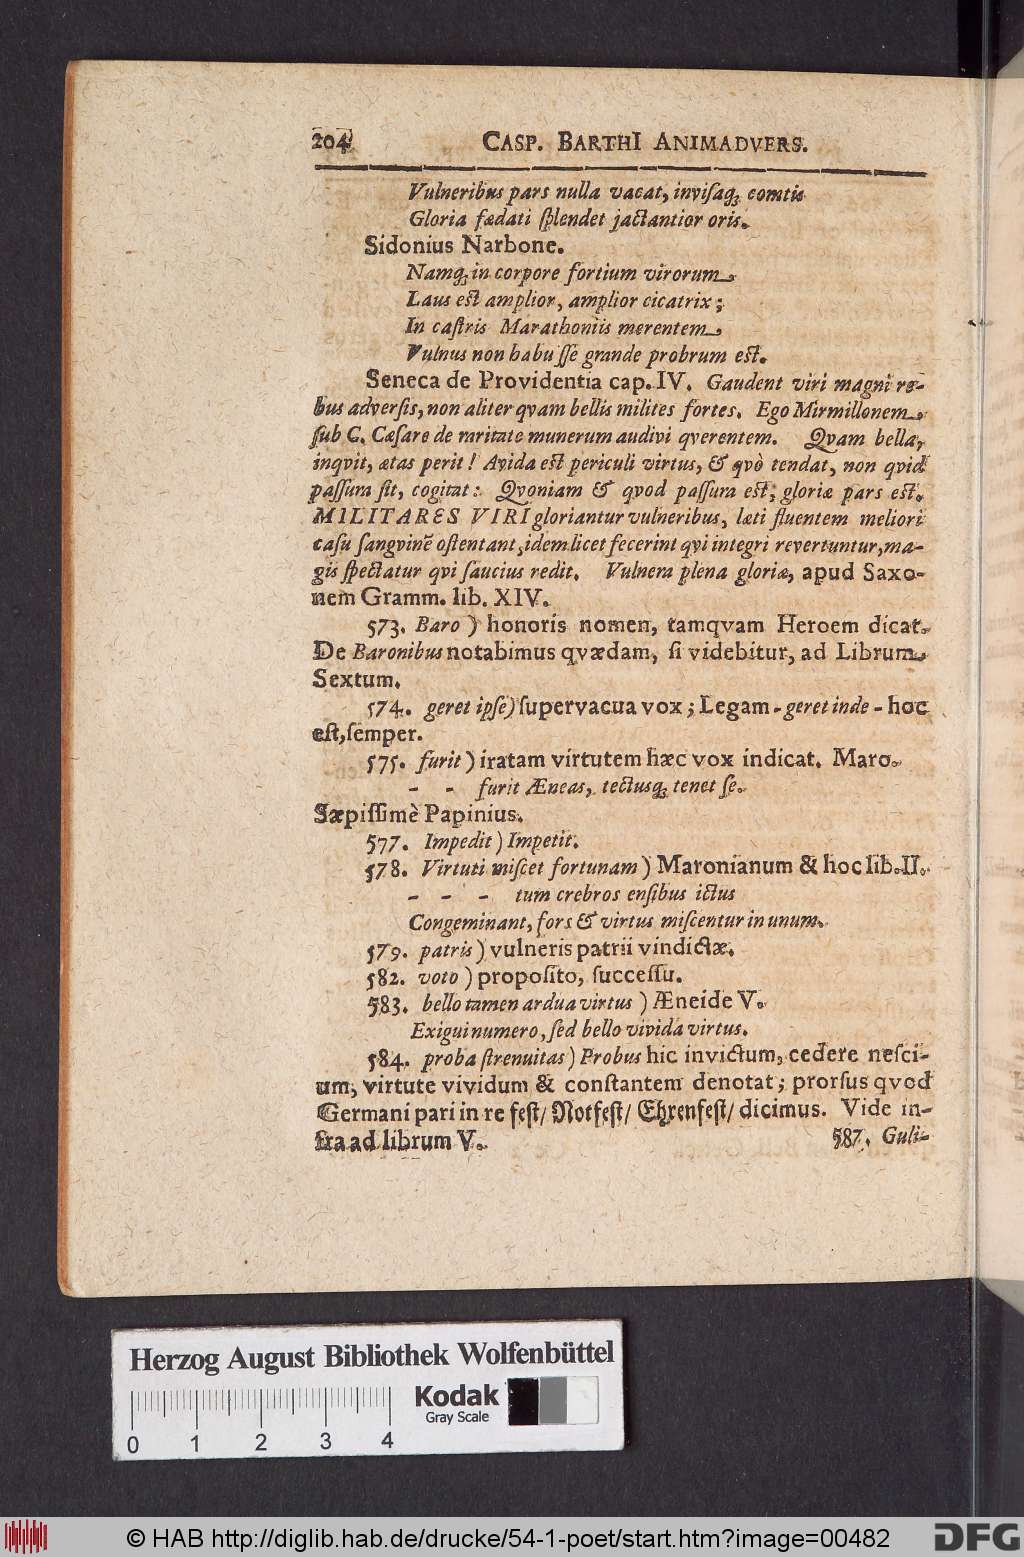 204 CASP. BARTHI ANIMADVERS.
Vulneribus pars nulla vacat, inviſaq; comtis
Gloria fœdati ſplendet jactantior oris.
Sidonius Narbone.
Namq; in corpore fortium virorum
Laus est amplior, amplior cicatrix;
In caſtris Marathoniis merentem
Vulnus non habuiſſe grande probrum eſt.
Seneca de Providentia cap. IV. Gaudent viri magni re-
bus adverſis, non aliter qvam bellis milites fortes. Ego Mirmillonem
ſub C. Cæſare de raritate munerum audivi qverentem. Qvam bella,
inqvit, ætas perit! Avida est periculi virtus, & qvò tendat, non qvid
paſſura ſit, cogitat: Qvoniam & qvod paſſura est, gloriæ pars est.
MILITARES VIRI gloriantur vulneribus, læti fluentem meliori
caſu ſangvinẽ oſtentant, idem licet fecerint qvi integri revertuntur, ma-
gis ſpectatur qvi ſaucius redit. Vulnera plena gloriæ, apud Saxo-
nem Gramm. lib. XIV.
573. Baro) honoris nomen, tamqvam Heroem dicat.
De Baronibus notabimus qvædam, ſi videbitur, ad Librum
Sextum.
574. geret ipſe) ſupervacua vox; Legam - geret inde - hoc
eſt, ſemper.
575. furit) iratam virtutem hæc vox indicat. Maro.
- - furit Æneas, tectusq; tenet ſe.
Sæpiſſimè Papinius.
577. Impedit) Impetit.
578. Virtuti miſcet fortunam) Maronianum & hoc lib. II.
- - - tum crebros enſibus ictus
Congeminant, fors & virtus miſcentur in unum.
579. patris) vulneris patrii vindictæ.
582. voto) propoſito, ſucceſſu.
583. bello tamen ardua virtus) Æneide V.
Exigui numero, ſed bello vivida virtus.
584. proba ſtrenuitas) Probus hic invictum, cedere neſci-
um, virtute vividum & conſtantem denotat; prorſus qvod
Germani pari in re feſt/ Notfeſt/ Ehrenfeſt/ dicimus. Vide in-
fra ad librum V. 587. Guli-
Herzog August Bibliothek Wolfenbüttel
Kodak
Gray Scale
0 1 2 3 4
© HAB http://diglib.hab.de/drucke/54-1-poet/start.htm?image=00482
DFG